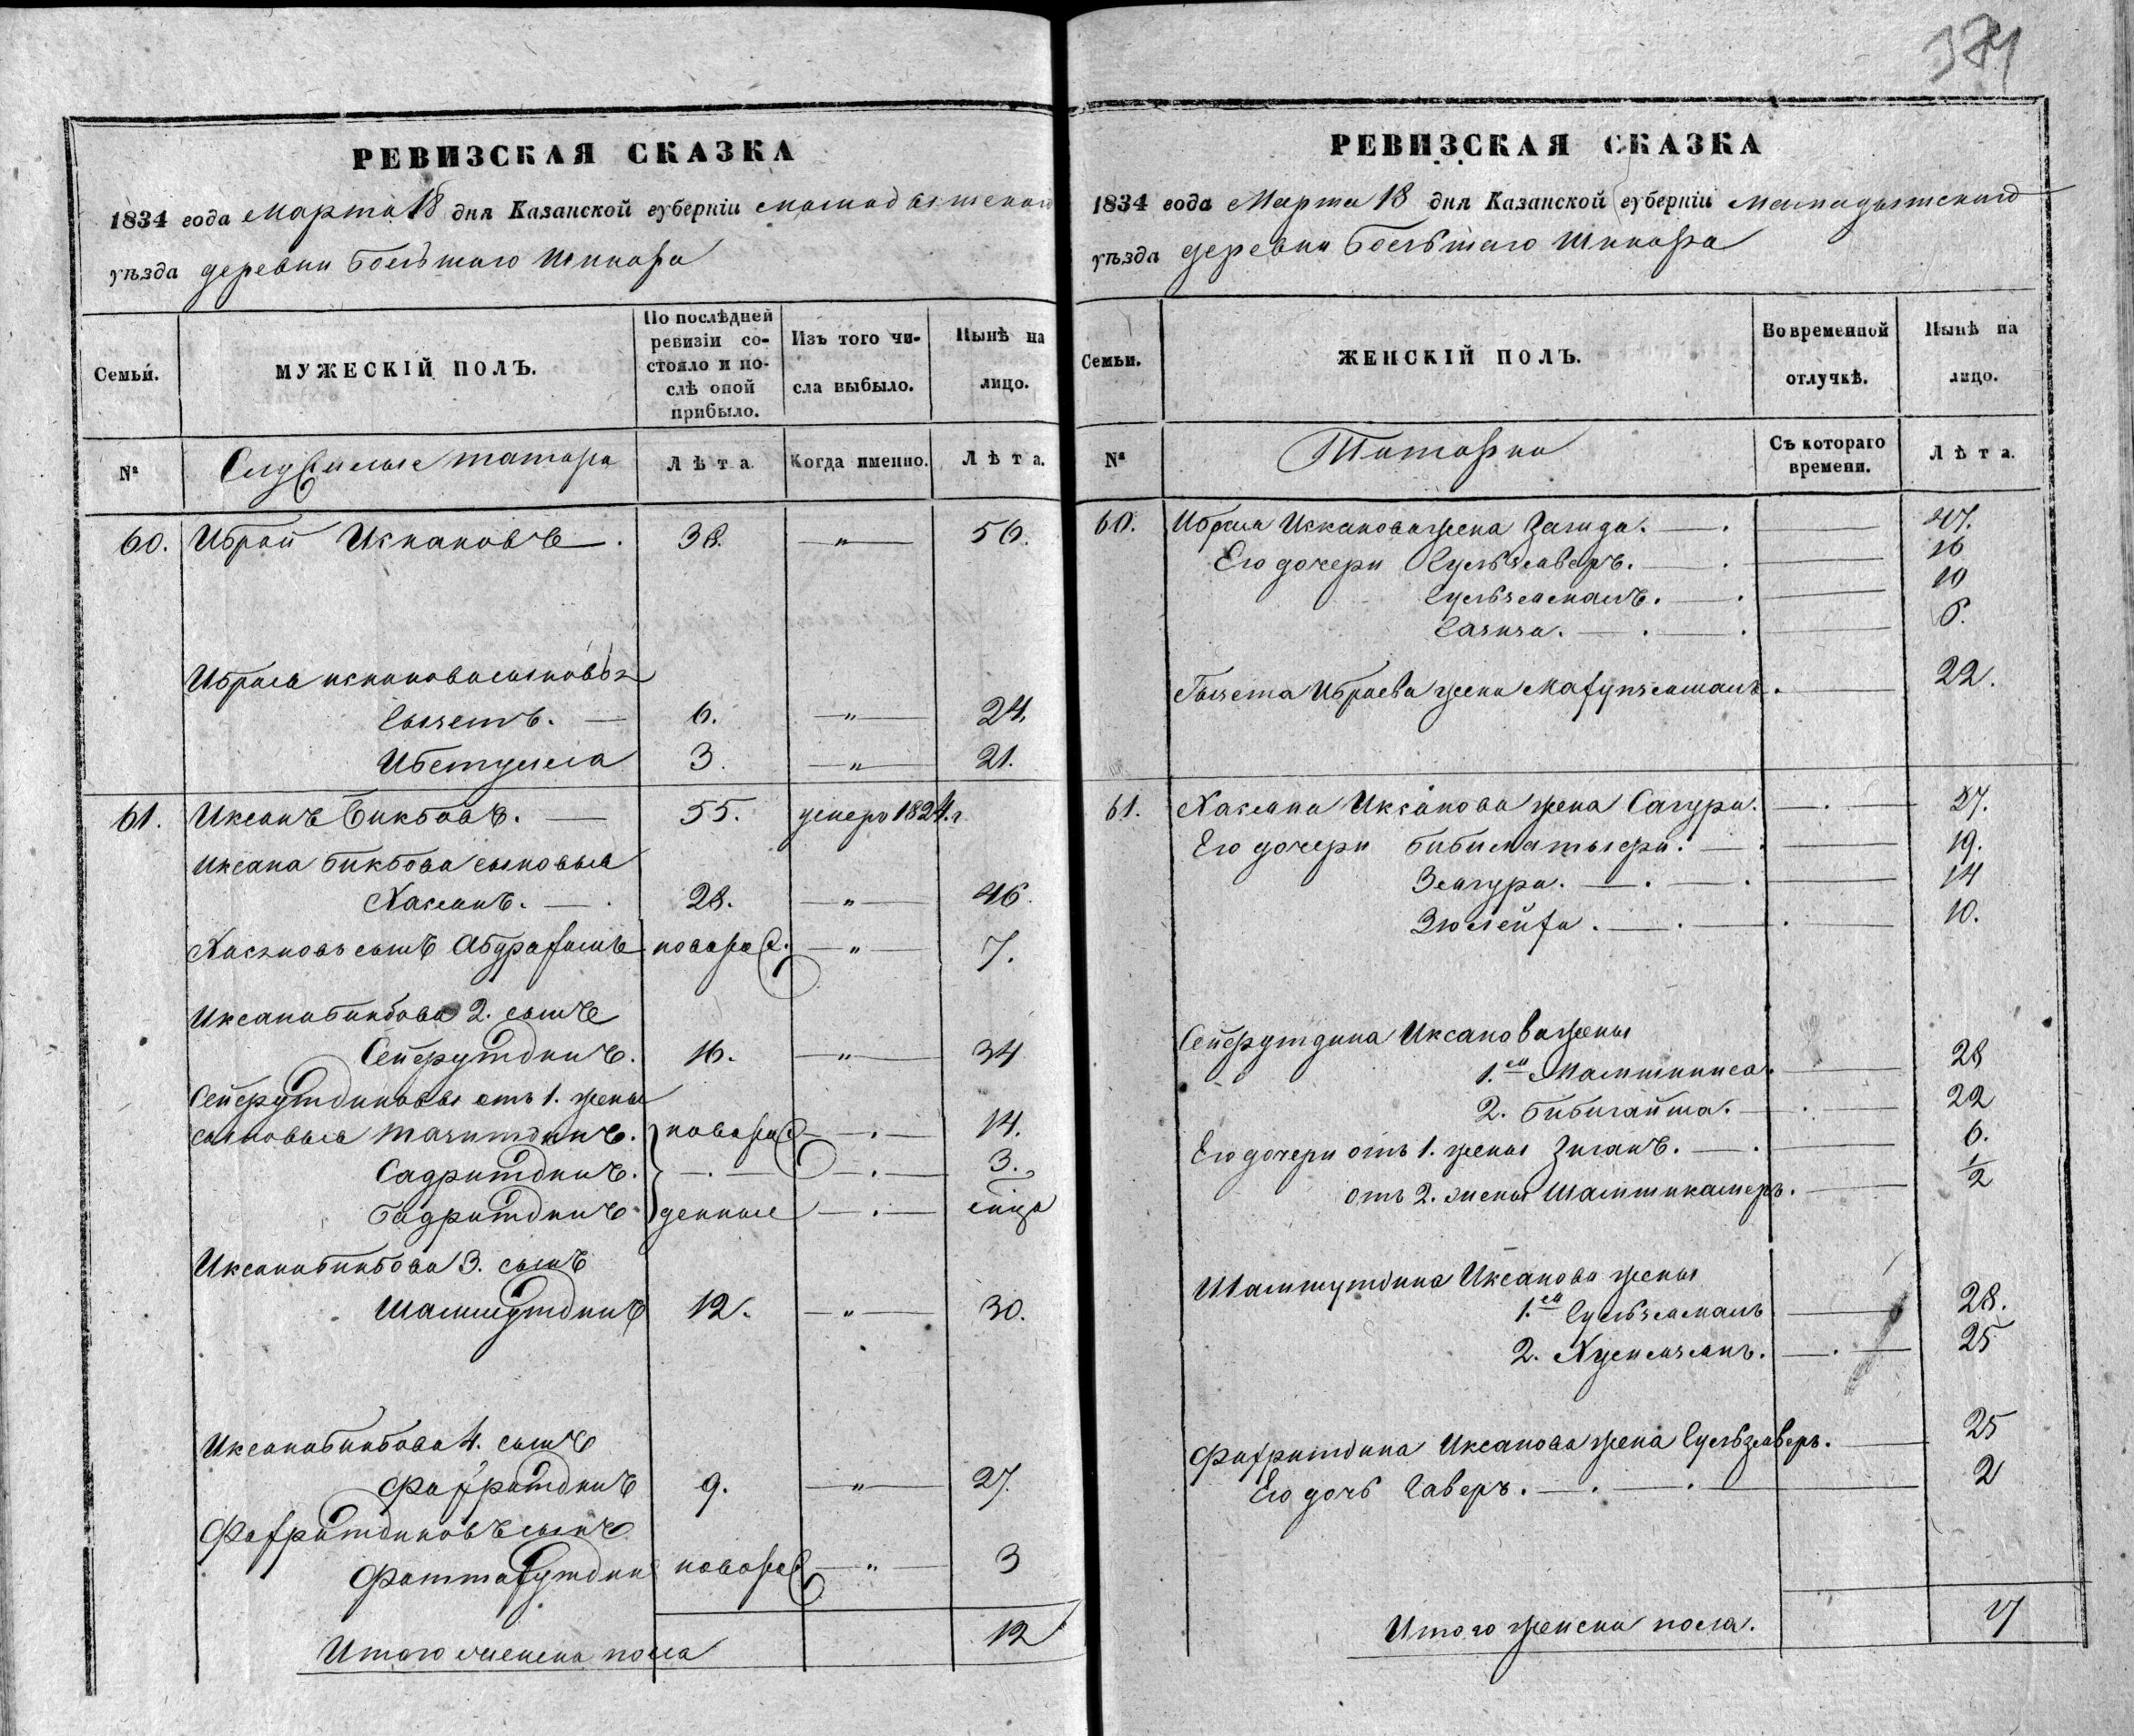 374
РЕВИЗСКАЯ СКАЗКА
1834 года Марта 18 дня Казанской губерніи Мамадышскаго
уѣзда деревни Большаго Шинара
Семьи.
МУЖЕСКІЙ ПОЛЪ.
По послѣдней ревизіи состояло и послѣ оной прибыло.
Изъ того числа выбыло.
Нынѣ на лицо.
№
Служилые татара
Лѣта.
Когда именно.
Лѣта.
60. Ибрай Искаковъ. 38. „ 56.
Ибрая Искакова сыновья
6. „ 24.
Ибетулла 3. „ 21.
61. Иксанъ Бикбовъ. 55. умеръ 1824. г
Иксана Бикбова сыновья
Хасанъ. 28. „ 46.
Хасановъ сынъ Абдрафикъ новорож. „ 7.
Иксана Бикбова 2. сынъ
Сейфутдинъ. 16. „ 34
Сейфутдиновы отъ 1. жены
сыновья Тазитдинъ. новорож 14.
Садритдинъ. 3.
Бадритдинъ денные
Иксана Бикбова 3. сынъ
Шамшутдинъ 12. „ 30.
Иксана Бикбова 4. сынъ
Фахритдинъ 9. „ 27.
Фахритдиновъ сынъ
Фаттахутдинъ новорож „ 3
Итого мужеска пола 12
РЕВИЗСКАЯ СКАЗКА
1834 года Марта 18 дня Казанской губерніи Мамадышскаго
уѣзда деревни Большаго Шинара
Семьи.
ЖЕНСКІЙ ПОЛЪ.
Во временной отлучкѣ.
Нынѣ на лицо.
№
Татарки
Съ котораго времени.
Лѣта.
60. Ибрая Искакова жена Загида. 47.
Его дочери Гульзаверъ. 16
Гульзямалъ. 10
Газиза. 6.
Ибраева жена 22.
61. Хасана Иксанова жена Сагура. 37.
Его дочери 19.
14
Зюлейха. 10.
Сейфутдина Иксанова жены
1.ая 28
2. Бибигайша. 22
Его дочери отъ 1. жены 6.
отъ 2. жены Шамшикамеръ. 1/2
Шамшутдина Иксанова жены
1.ая Гульзямалъ 28.
2. 25
Фахритдина Иксанова жена Гульзаверъ. 25
Его дочь Гаверъ. 2
Итого женска пола. 17